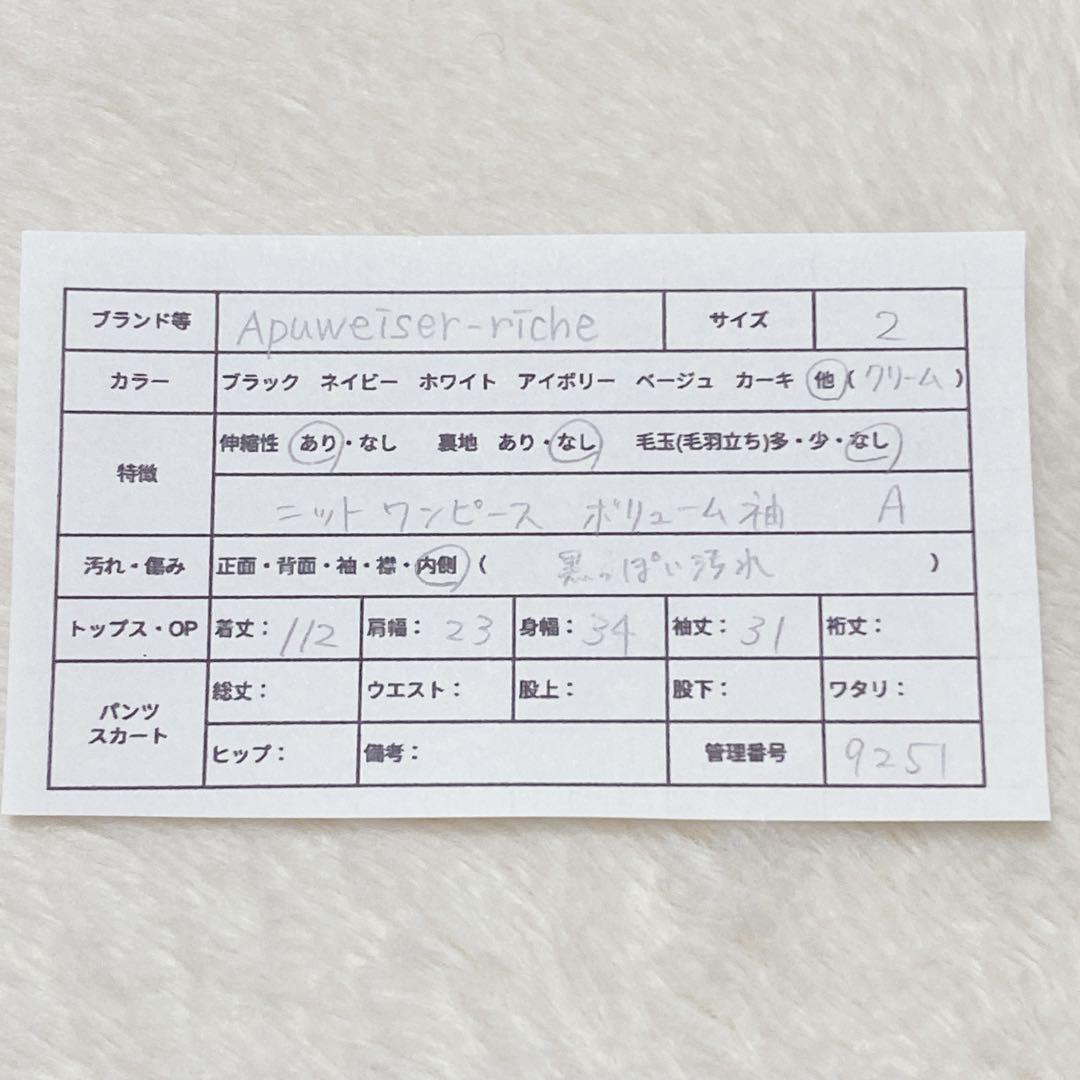 ブランド等 Apuweiser-riche サイズ 2
カラー ブラック ネイビー ホワイト アイボリー ベージュ カーキ 他(クリーム)
特徴 伸縮性 あり・なし 裏地 あり・なし 毛玉(毛羽立ち)多・少・なし
ニットワンピース ボリューム袖 A
汚れ・傷み 正面・背面・袖・襟・内側(黒っぽい汚れ)
トップス・OP 着丈:112 肩幅:23 身幅:34 袖丈:31 裄丈:
パンツ
スカート
総丈: ウエスト: 股上: 股下: ワタリ:
ヒップ: 備考: 管理番号 9251